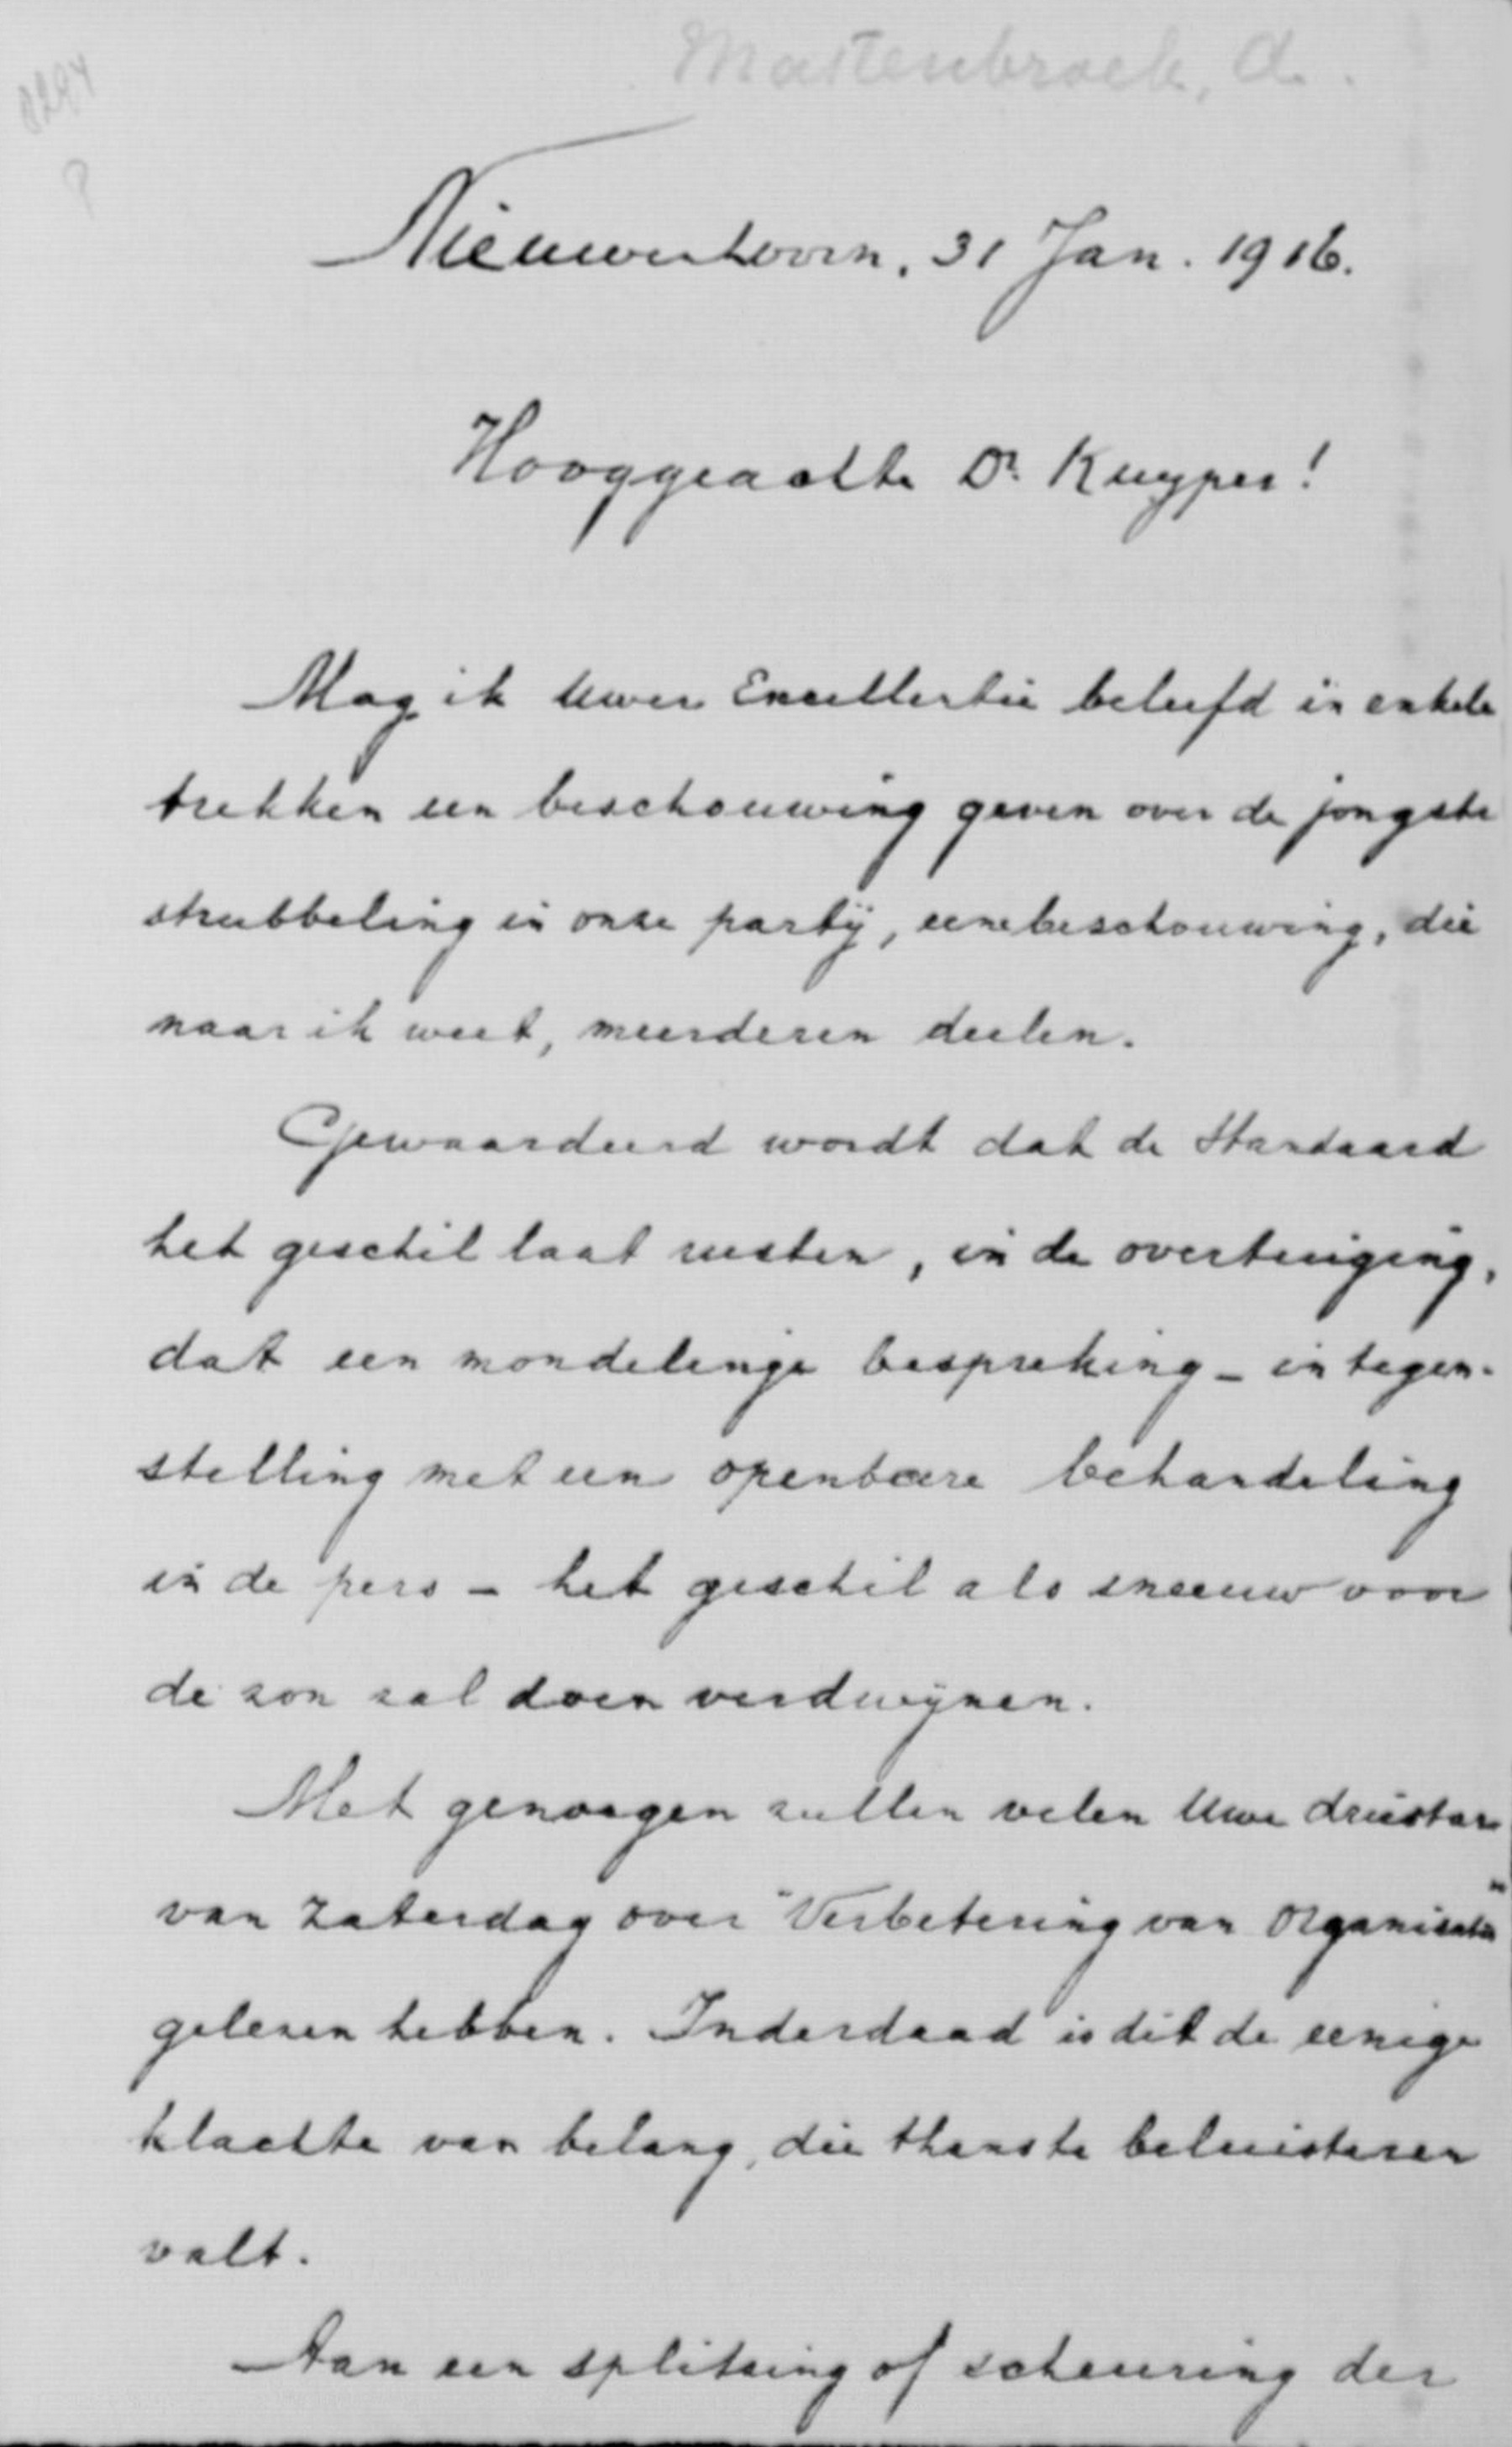 Mastenbroek, A.
8294
Nieuwerhoorn, 31 Jan. 1916.
Hooggeachte Dr. Kuyper!
Mag ik Uwer Excellentie beleefd in enkele
trekken een beschouwing geven over de jongste
strubbeling in onze partij, eene beschouwing, die
naar ik weet, meerderen deelen.
Gewaardeerd wordt dat de Standaard
het geschil laat rusten, in de overtuiging,
dat een mondelinge bespreking - in tegen-
stelling met een openbare behandeling
in de pers - het geschil als sneeuw voor
de zon zal doen verdwijnen.
Met genoegen zullen velen Uwe driestar
van Zaterdag over "Verbetering van Organisatie"
gelezen hebben. Inderdaad is dit de eenige
klachte van belang, die thans te beluisteren
valt.
Aan een splitsing of scheuring der